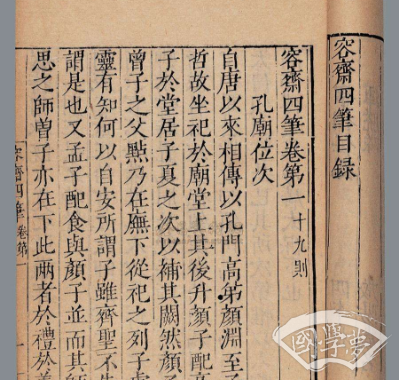 容齋四筆目録
容齋四筆卷第一 十九則
孔廟位次
自唐以來相傳以孔門高弟顏淵至子
哲故坐祀於廟堂上其後升顏子配
子於堂居子夏之次以補其闕然顏
曾子之父點乃在廡下從祀之列子
靈有知何以自安所謂子雖齊聖不
謂是也又孟子配食與顏子並而其師
思之師曾子亦在下此兩者於禮於
容齋四筆 卷第一
國學夢